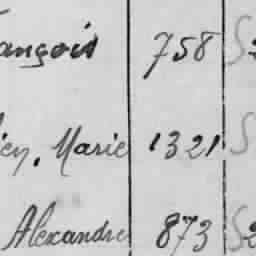 ançois 758 S
ey, Marie 1321 S
Alexandre 873 S